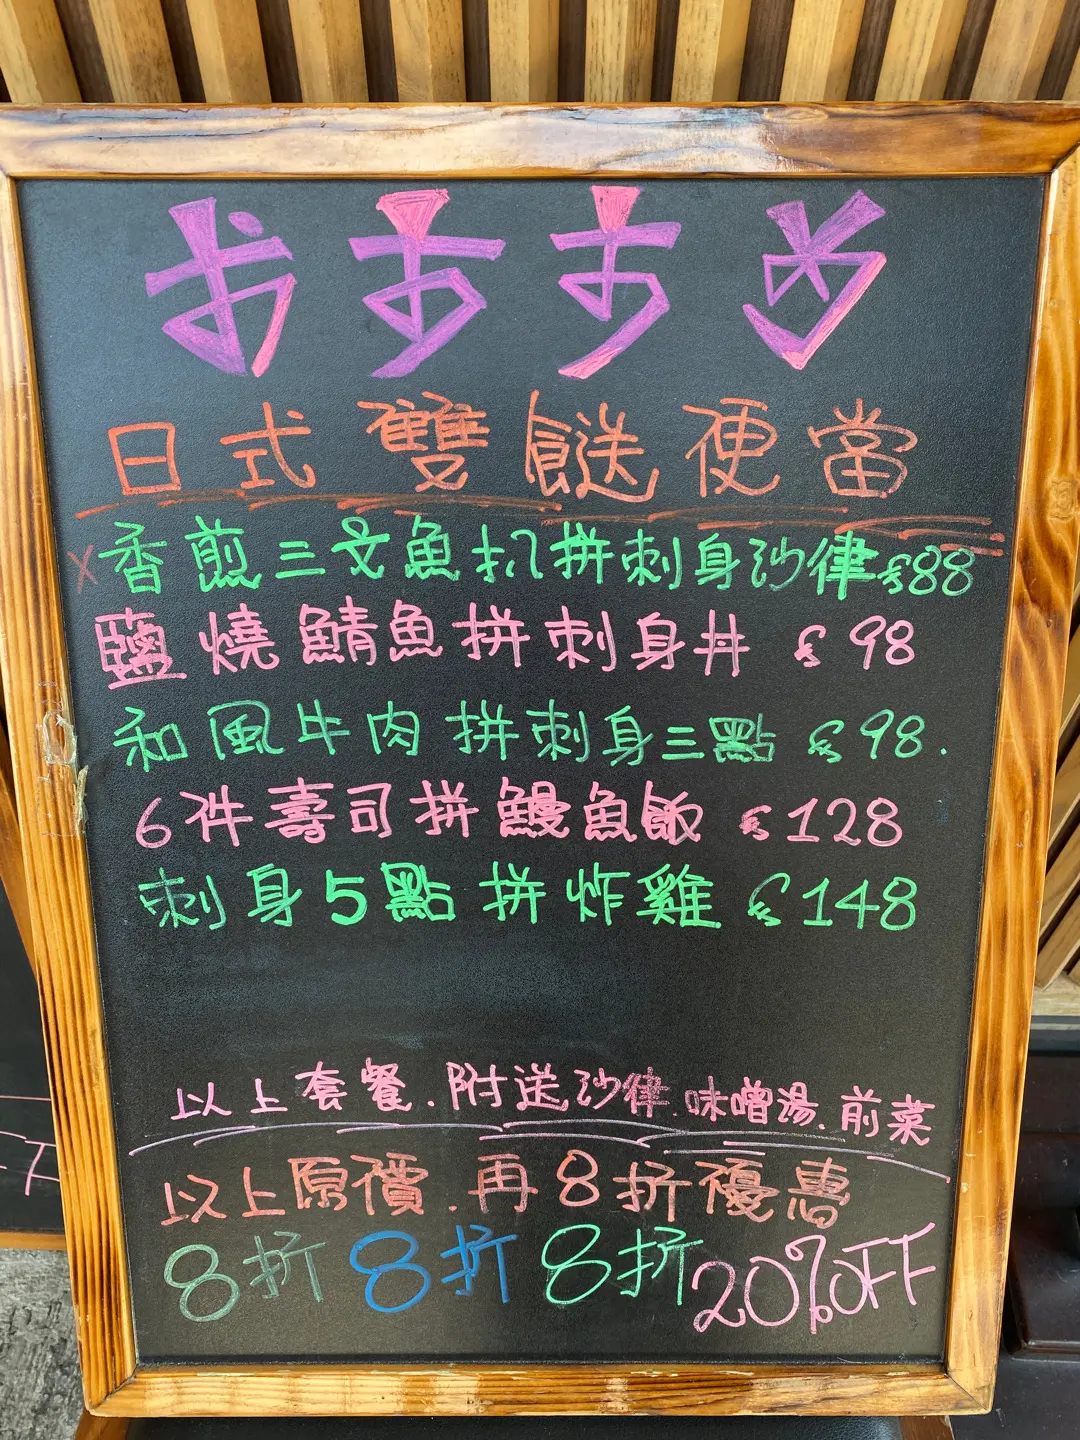 おすすめ
日式雙餸便當
x香煎三文魚扒拼刺身沙律$88
鹽燒鯖魚拼刺身丼 $98
和風牛肉拼刺身三點 $98.
6件壽司拼鰻魚飯 $128
刺身5點拼炸雞 $148
以上套餐.附送沙律.味噌湯.前菜
以上原價.再8折優惠
8折 8折 8折 20%OFF